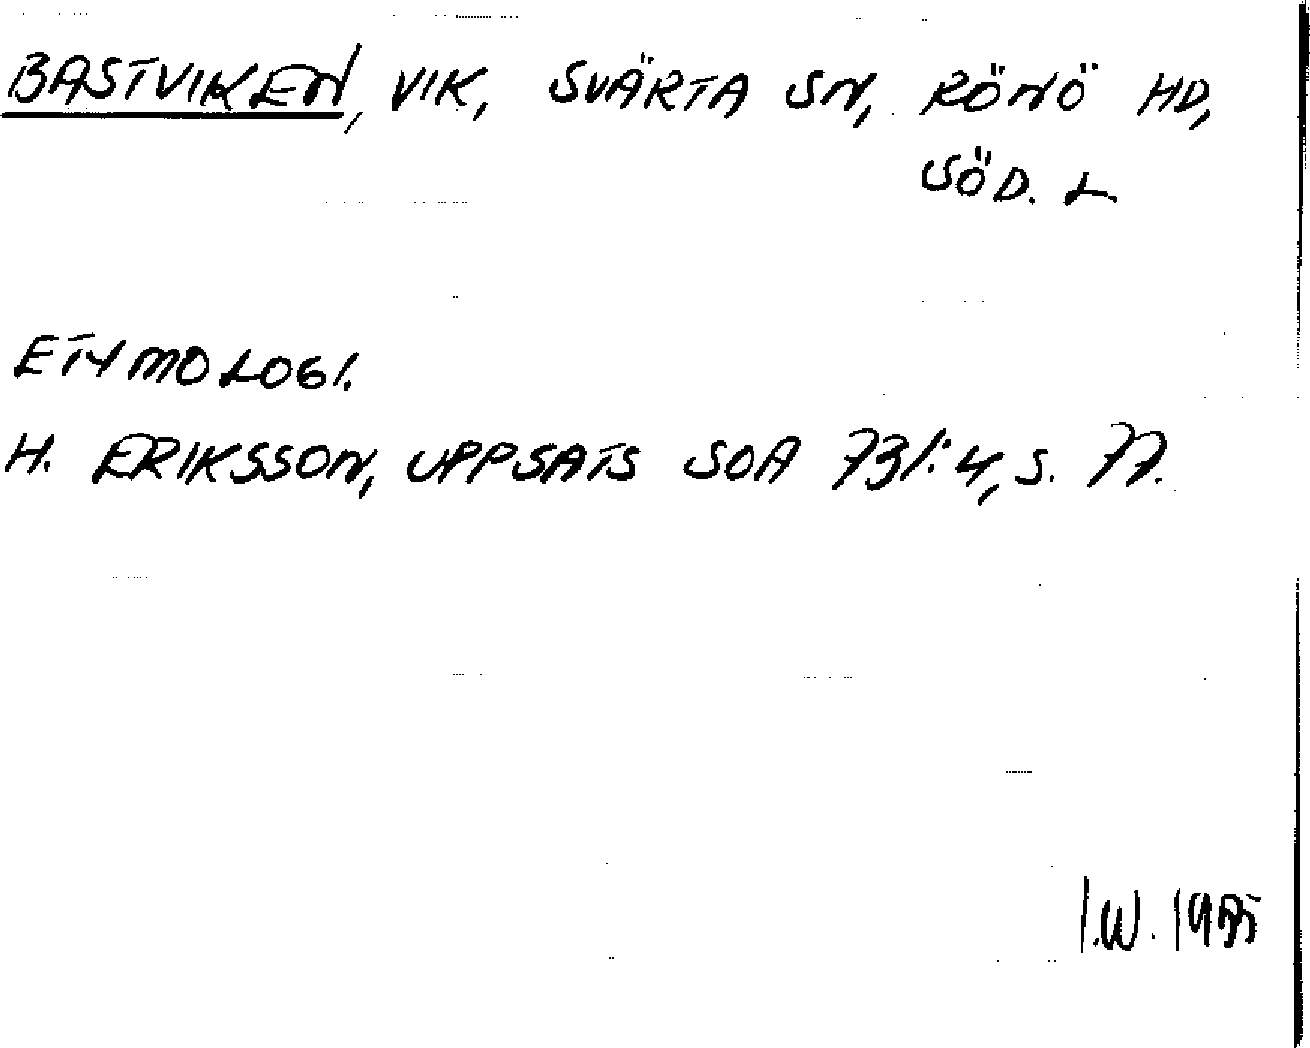 BASTVIKEN, VIK, SVÄRTA SN, RÖNÖ HD,
SÖD. L
ETYMOLOGI.
H. ERIKSSON, UPPSATS SOA 731:4, S. 77.
I.W.